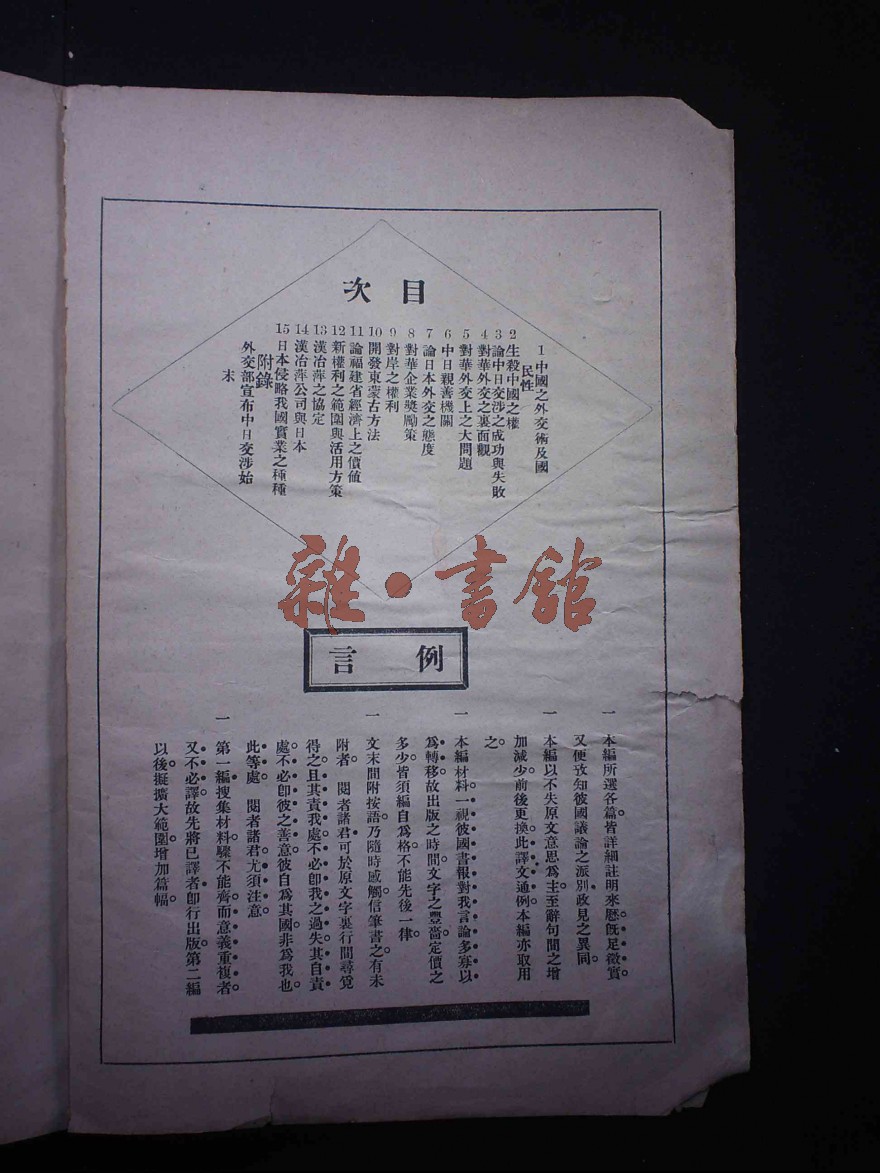 目次
1 中國之外交術及國
民性
2 生殺中國之權
3 論中日交涉之成功與失敗
4 對華外交之裏面觀
5 對華外交上之大問題
6 中日親善機關
7 論日本外交之態度
8 對華企業獎勵策
9 對岸之權利
10 開發東蒙古方法
11 論福建省經濟上之價値
12 新權利之範圍與活用方策
13 漢冶萍之協定
14 漢冶萍公司與日本
15 日本侵略我國實業之種種
附錄
外交部宣布中日交涉始
末
雜·書館
例言
一 本編所選各篇皆詳細註明來歷旣足徵實。
又便攷知彼國議論之派別政見之異同。
一 本編以不失原文意思爲主至辭句間之增
加減少前後更換此譯文通例本編亦取用
之。
一 本編材料一視彼國書報對我言論多寡以
爲轉移故出版之時間文字之豐嗇定價之
多少皆須編自爲格不能先後一律。
一 文末間附按語乃隨時感觸信筆書之有未
附者。閱者諸君可於原文字裏行間尋覓
得之且其責我處不必卽我之過失其自責
處不必卽彼之善意彼自爲其國非爲我也。
此等處。閱者諸君尤須注意。
一 第一編搜集材料驟不能齊而意義重複者
又不必譯故先將已譯者卽行出版。第二編
以後擬擴大範圍增加篇幅。